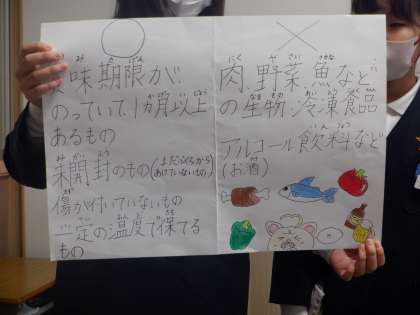 ○
味期限が
のっていて、1ヵ月以上
あるもの
未開封のもの(まだふくろから
あけていないもの)
傷が付いていないもの
一定の温度で保てる
もの
×
肉、野菜、魚など
の生物、冷凍食品
アルコール飲料など
(お酒)